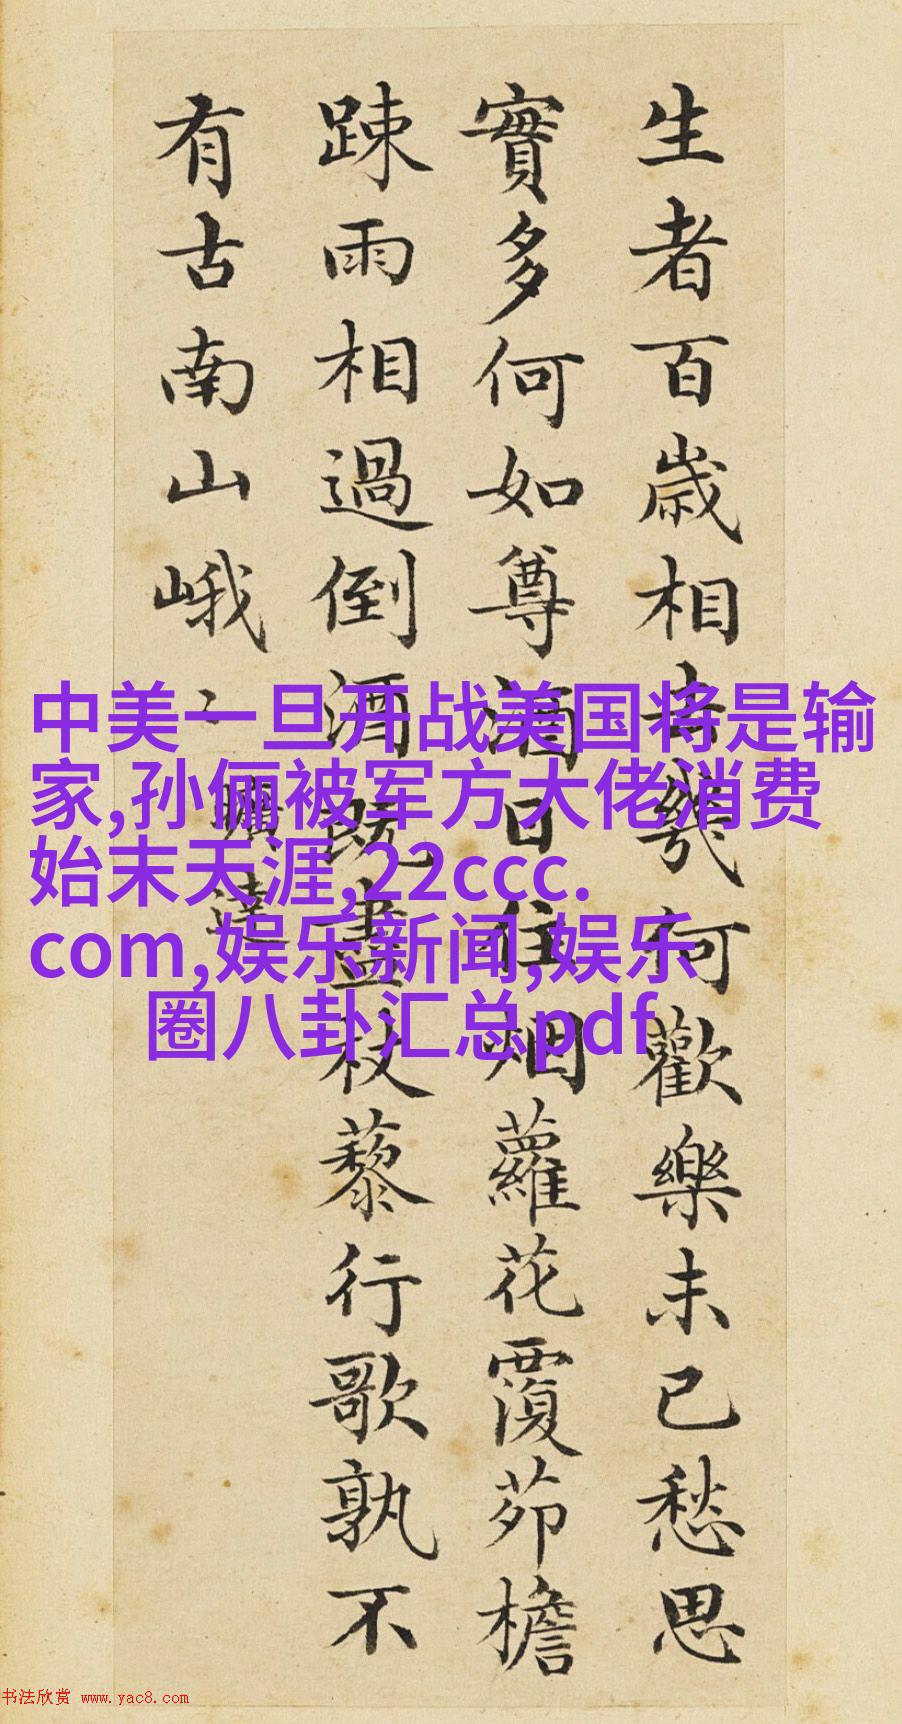 生者百歲相去幾何歡樂未已愁思
實多何如尊酒日往烟蘿花覆茆檐
踈雨相過倒酒既盡杖藜行歌孰不
有古南山峨〻曠達
中美一旦开战美国将是输
家,孙俪被军方大佬消费
始末天涯,22ccc.
com,娱乐新闻,娱乐
圈八卦汇总pdf
书法欣赏 www.yac8.com